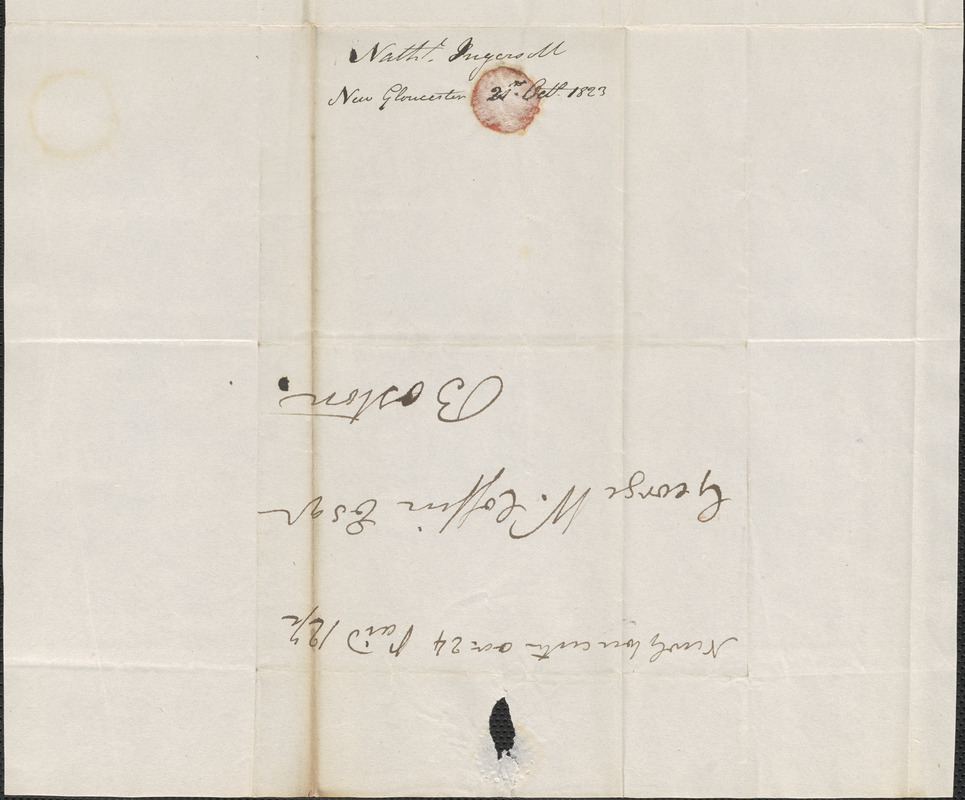 Nath.l Ingersoll
New Gloucester 21st Octr. 1823
New Gloucester Oct 24 Paid 12½
George W. Coffin Esqr
Boston.